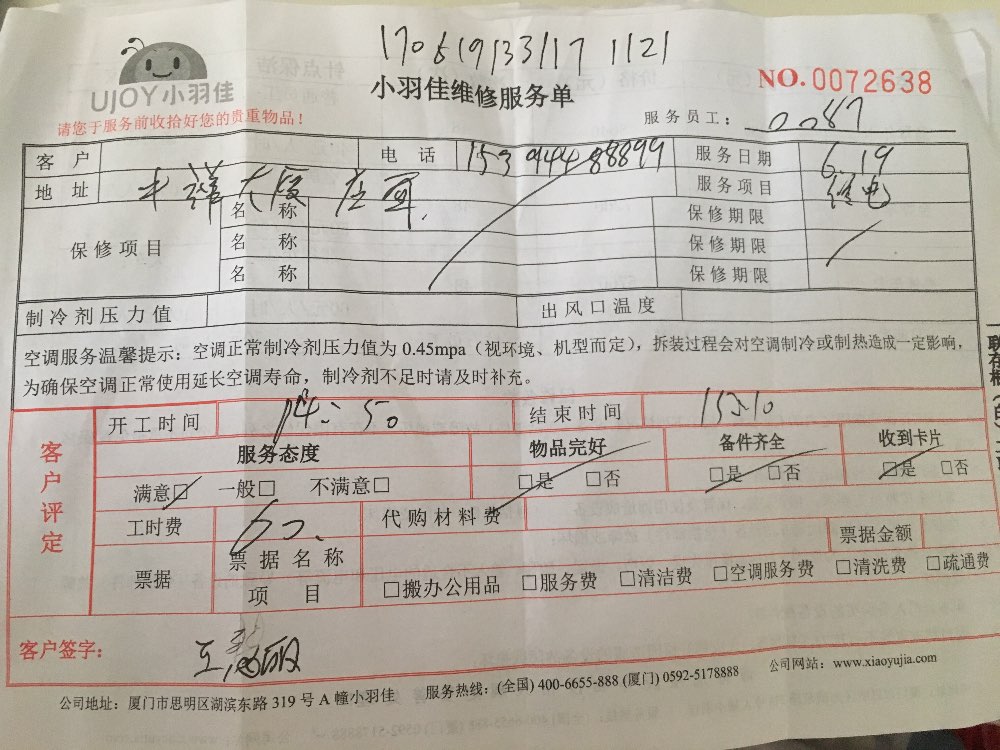 170619133117 1121
UJOY小羽佳
小羽佳维修服务单
NO.0072638
请您于服务前收拾好您的贵重物品！
服务员工： 0087
客户 电话 服务日期 6.19
地址 服务项目 修电
保修项目 名称 保修期限
名称 保修期限
名称 保修期限
制冷剂压力值 出风口温度
空调服务温馨提示：空调正常制冷剂压力值为 0.45mpa（视环境、机型而定），拆装过程会对空调制冷或制热造成一定影响，
为确保空调正常使用延长空调寿命，制冷剂不足时请及时补充。
客户评定
开工时间 14:50 结束时间 15:10
服务态度 物品完好 备件齐全 收到卡片
满意□ 一般□ 不满意□ □是 □否 □是 □否 □是 □否
工时费 60. 代购材料费
票据 票据名称 票据金额
项目 □搬办公用品 □服务费 □清洁费 □空调服务费 □清洗费 □疏通费
客户签字：
公司地址：厦门市思明区湖滨东路 319 号 A 幢小羽佳 服务热线：(全国) 400-6655-888 (厦门) 0592-5178888 公司网站：www.xiaoyujia.com